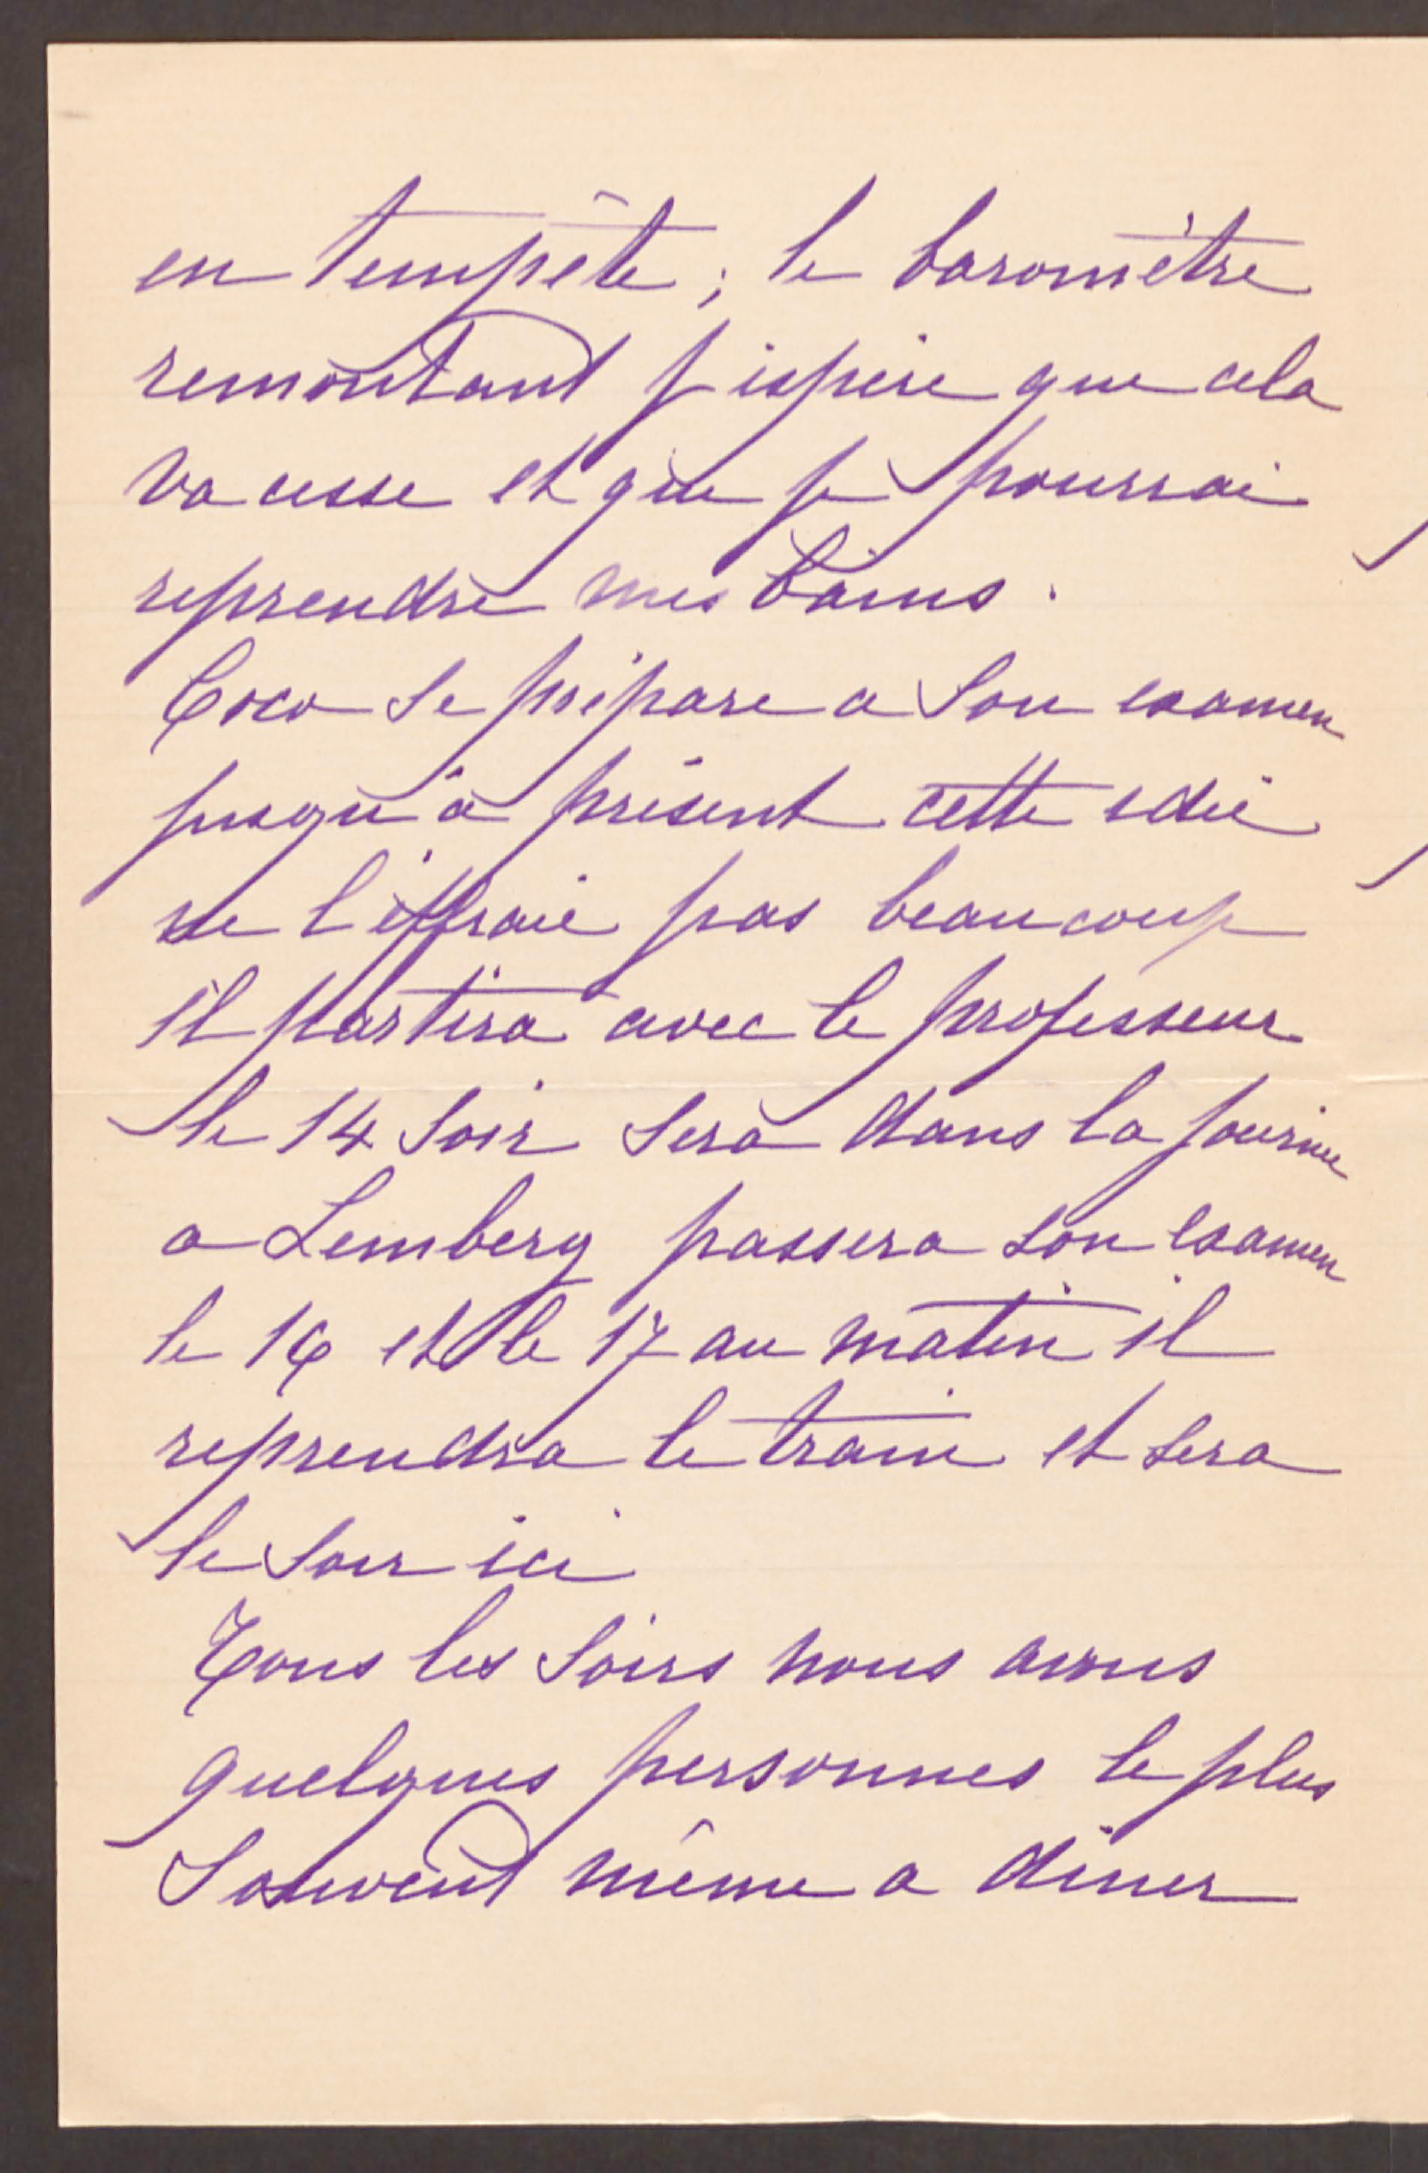 en tempête ; le baromètre
remontant j'espère que cela
va cesse et que je pourrai
reprendre mes bains.
Coco se prépare a son examen
jusqu'à présent cette idée
ne l'éffraie pas beaucoup
il partira avec le professeur
le 14 soir sera dans la journée
a Lemberg passera son examen
le 16 et le 17 au matin il
reprendra le train et sera
le soir ici
Tous les soirs nous avons
quelques personnes le plus
souvent même a diner